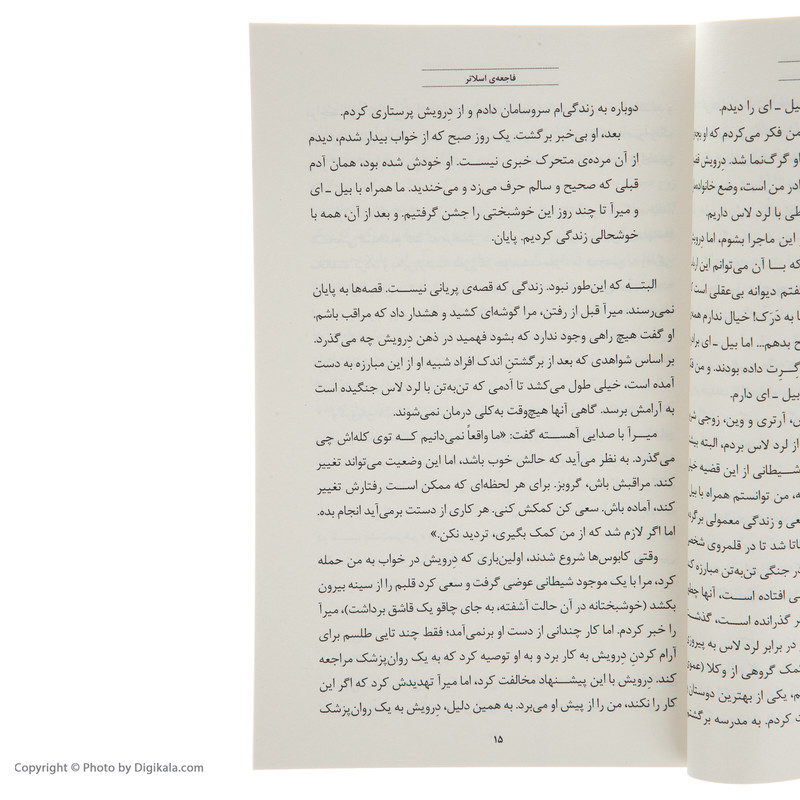 فاجعه‌ی اسلاتر
دوباره به زندگی‌ام سروسامان دادم و از دِرویش پرستاری کردم.
بعد، او بی‌خبر برگشت. یک روز صبح که از خواب بیدار شدم، دیدم
از آن مرده‌ی متحرک خبری نیست. او خودش شده بود، همان آدم
قبلی که صحیح و سالم حرف می‌زد و می‌خندید. ما همراه با بیل ـ ای
و میرآ تا چند روز این خوشبختی را جشن گرفتیم. و بعد از آن، همه با
خوشحالی زندگی کردیم. پایان.
البته که این‌طور نبود. زندگی که قصه‌ی پریانی نیست. قصه‌ها به پایان
نمی‌رسند. میرآ قبل از رفتن، مرا گوشه‌ای کشید و هشدار داد که مراقب باشم.
او گفت هیچ راهی وجود ندارد که بشود فهمید در ذهن دِرویش چه می‌گذرد.
بر اساس شواهدی که بعد از برگشتنِ اندک افراد شبیه او از این مبارزه به دست
آمده است، خیلی طول می‌کشد تا آدمی که تن‌به‌تن با لرد لاس جنگیده است
به آرامش برسد. گاهی آنها هیچ‌وقت به‌کلی درمان نمی‌شوند.
میرآ با صدایی آهسته گفت: «ما واقعاً نمی‌دانیم که توی کله‌اش چی
می‌گذرد. به نظر می‌آید که حالش خوب باشد، اما این وضعیت می‌تواند تغییر
کند. مراقبش باش، گروبز. برای هر لحظه‌ای که ممکن است رفتارش تغییر
کند، آماده باش. سعی کن کمکش کنی. هر کاری از دستت برمی‌آید انجام بده.
اما اگر لازم شد که از من کمک بگیری، تردید نکن.»
وقتی کابوس‌ها شروع شدند، اولین‌باری که دِرویش در خواب به من حمله
کرد، مرا با یک موجود شیطانی عوضی گرفت و سعی کرد قلبم را از سینه بیرون
بکشد (خوشبختانه در آن حالت آشفته، به جای چاقو یک قاشق برداشت)، میرآ
را خبر کردم. اما کار چندانی از دست او برنمی‌آمد؛ فقط چند تایی طلسم برای
آرام کردنِ دِرویش به کار برد و به او توصیه کرد که به یک روان‌پزشک مراجعه
کند. دِرویش با این پیشنهاد مخالفت کرد، اما میرآ تهدیدش کرد که اگر این
کار را نکند، من را از پیش او می‌برد. به همین دلیل، دِرویش به یک روان‌پزشک
۱۵
بیل ـ ای را دیدم.
من فکر می‌کردم که او
او گرگ‌نما شد. دِرویش
در من است، وضع
با لرد لاس داریم.
این ماجرا بشوم، اما
که با آن می‌توانم این
دیوانه بی‌عقلی است
به دَرَک! خیال ندارم
بدهم... اما بیل ـ ای
داده بودند. و من
بیل ـ ای دارم.
آرتری و وین، زوجی
از لرد لاس بردم، البته
شیطانی از این قضیه
من توانستم همراه با
و زندگی معمولی
شد تا در قلمروی
جنگی تن‌به‌تن مبارزه
افتاده است، آنها
گذرانده است،
در برابر لرد لاس به
کمک گروهی از وکلا
یکی از بهترین دوستان
کردم. به مدرسه
Copyright © Photo by Digikala.com